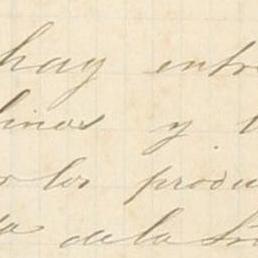 hay entr
linos y
los produ
de la